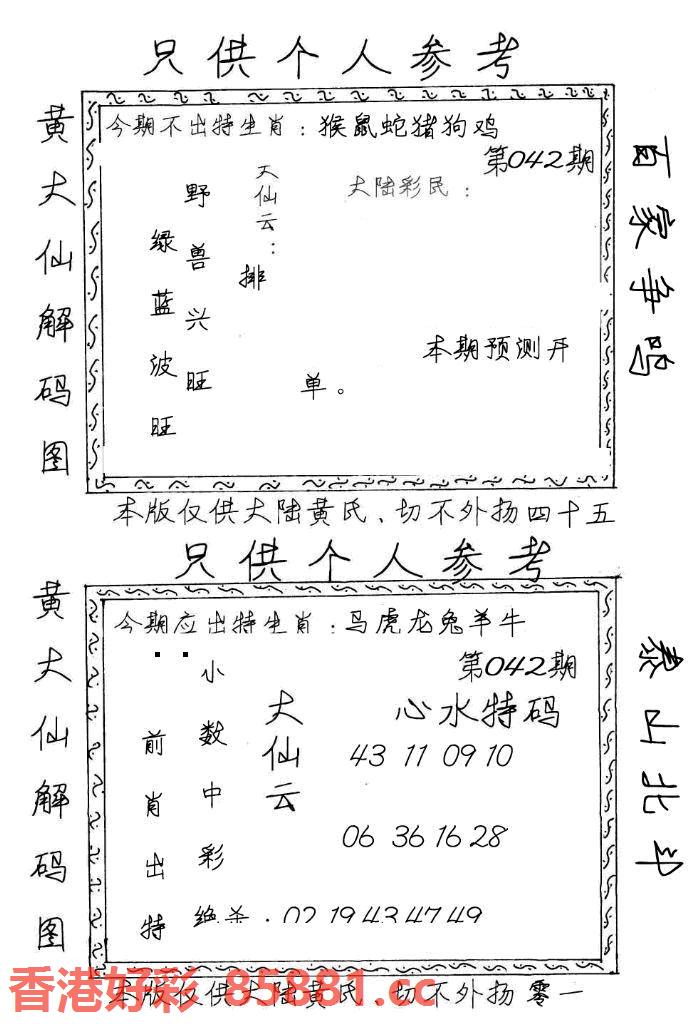 只供个人参考
黄大仙解码图
今期不出特生肖：猴鼠蛇猪狗鸡
第042期
大陆彩民：
大仙云：
排
野兽兴旺
绿蓝波旺
单。
本期预测开
百家争鸣
本版仅供大陆黄氏、切不外扬四十五
只供个人参考
黄大仙解码图
今期应出特生肖：马虎龙兔羊牛
第042期
心水特码
大大仙云
小数中彩
前肖出特
43 11 09 10
06 36 16 28
绝杀：02 19 43 47 49
泰山北斗
本版仅供大陆黄氏、切不外扬零一
香港好彩 85881.cc